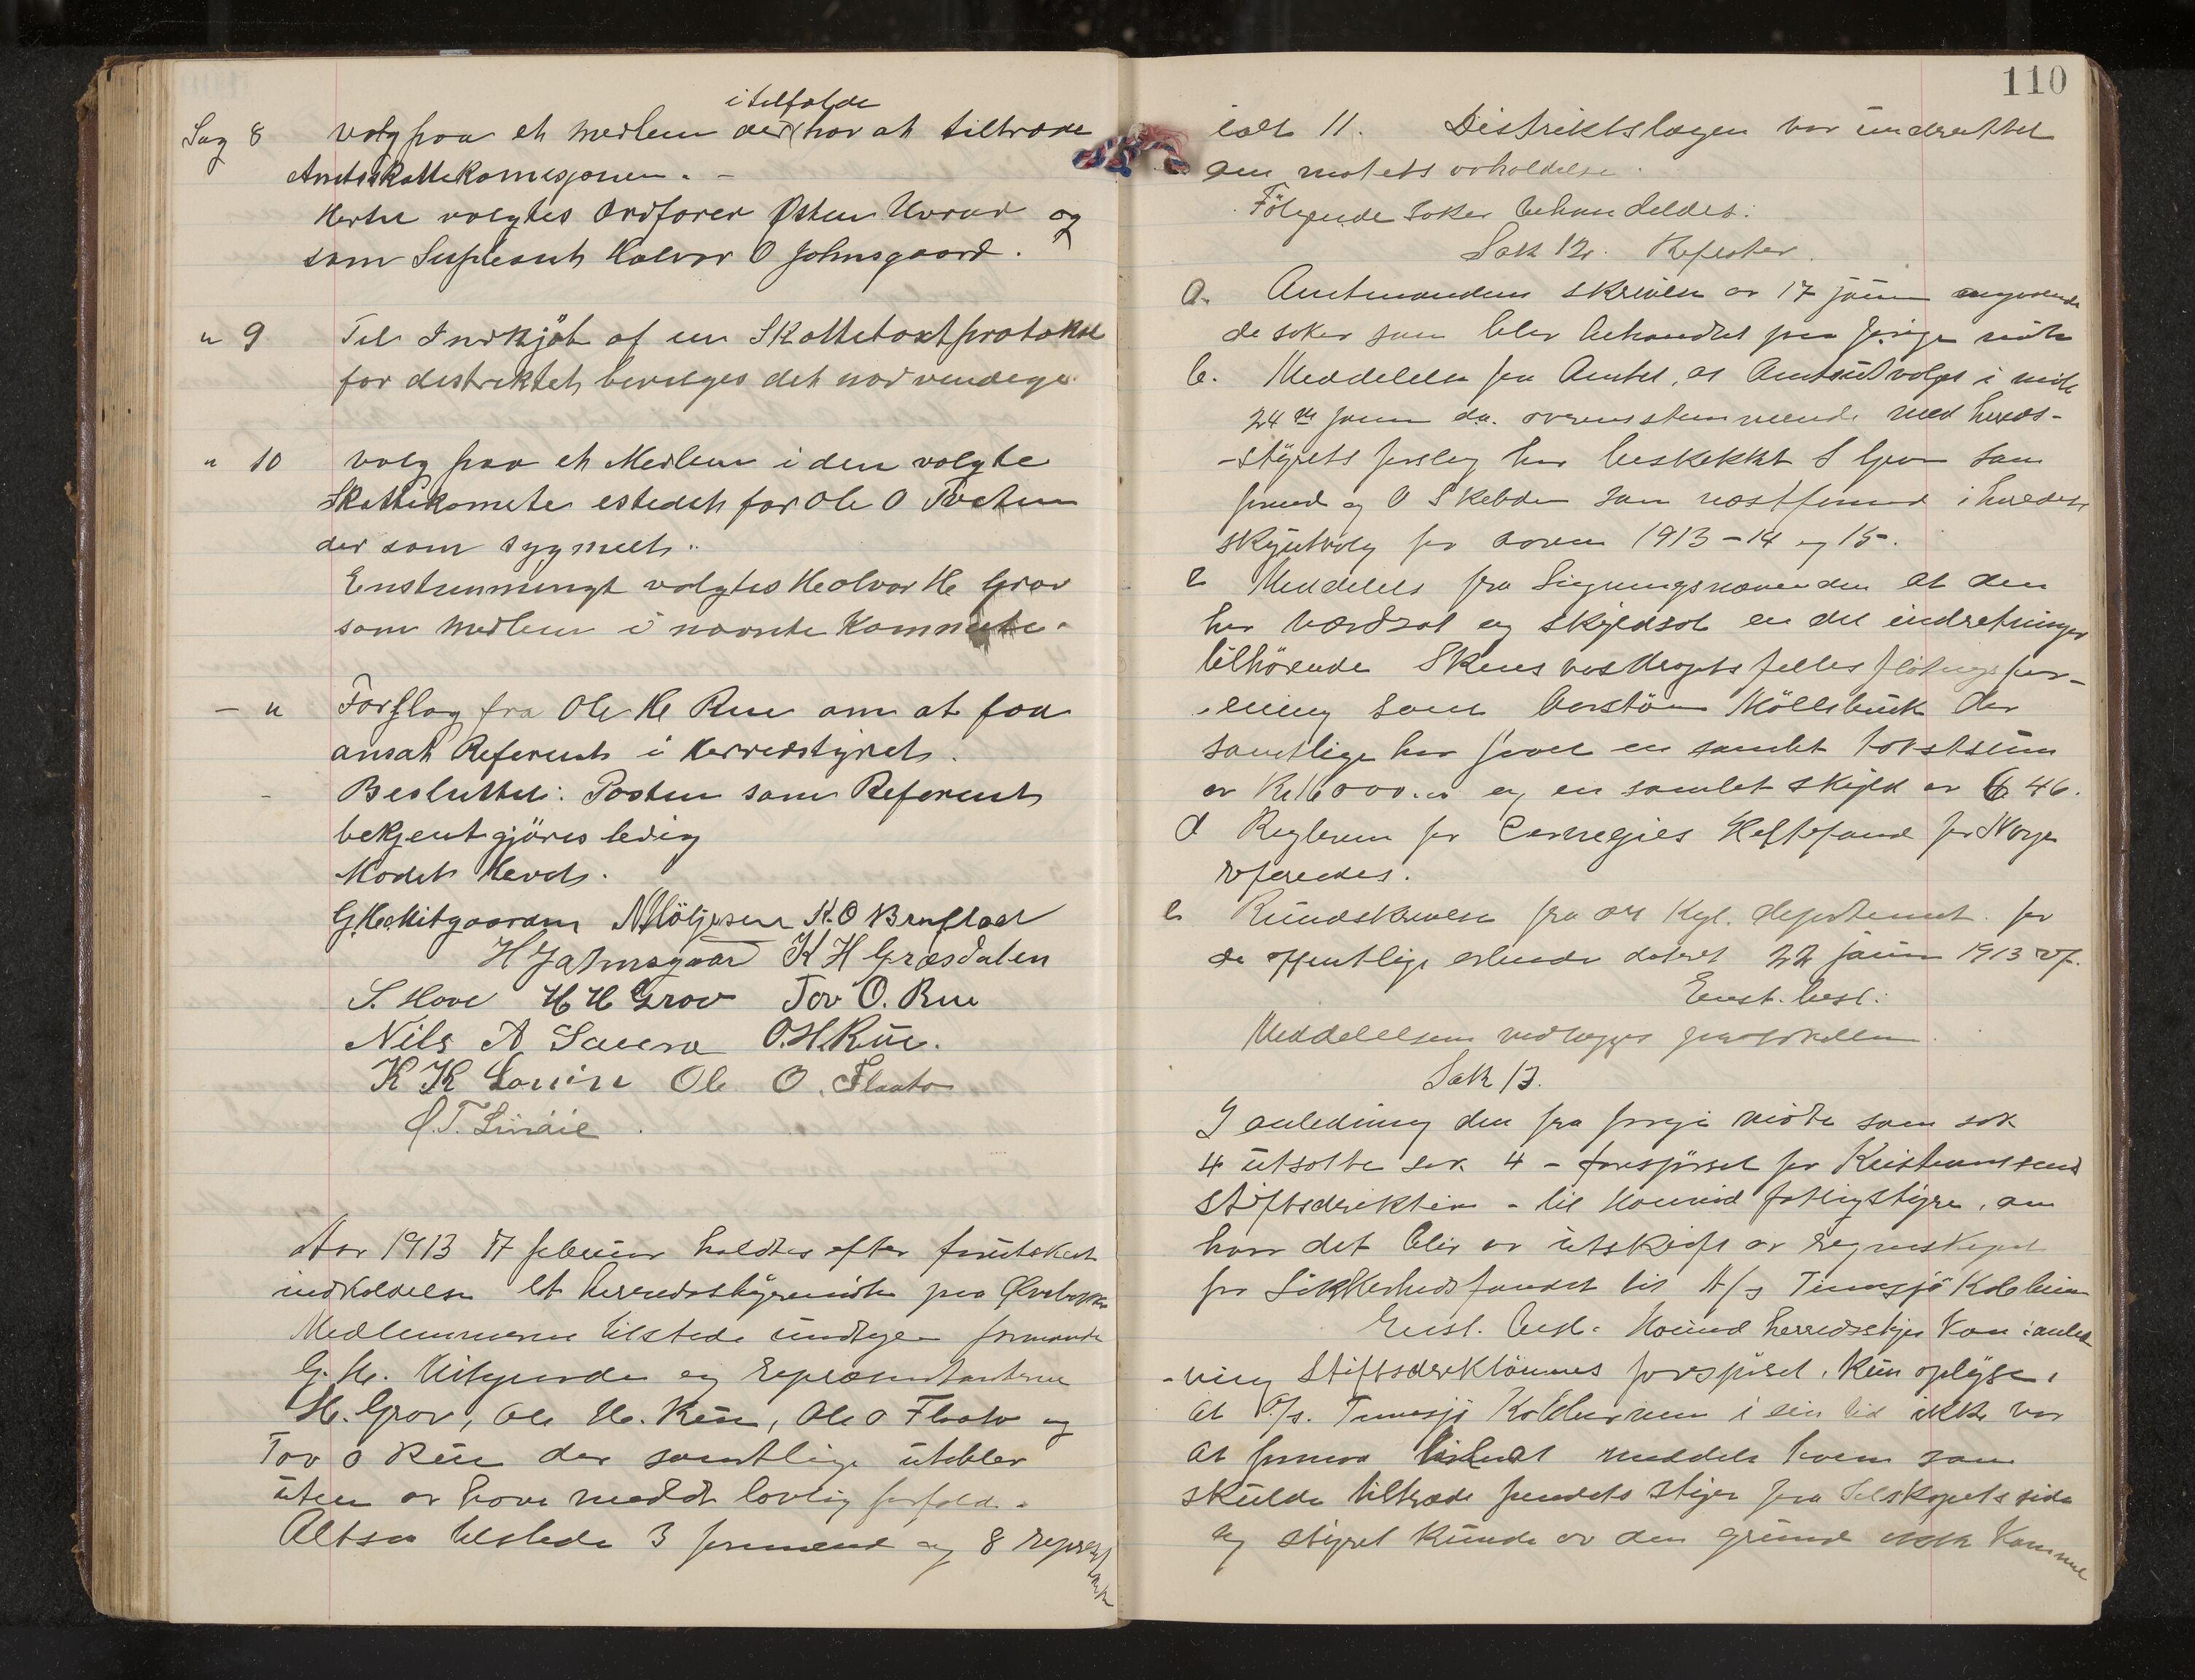 Sag 8 valg paa et medlem der i tilfælde har at tiltræde
Amtsskattekomisjonen. -
Hertil valgtes Ordfører Østen Uvrud og
som Supleant Halvor O Johnsgaard.
" 9 Til Indkjöb af en Skattetaxtprotokol
for distriktet bevilges det nødvendige
" 10 valg paa et Medlem i den valgte
Skattekomete estedet for Ole O
der som sygmelt.
Enstemmingt valgtes Halvor H. Grov
som medlem i nævnte Kommete.
- " Forslag fra Ole H Rue om at faa
ansat Referent i Herredstyret.
- Besluttet: Posten som Referent
bekjentgjöres ledig
Mödet Hevet.
G. H. Mitgaarden K. O Brufladt
K H Græsdalen
S. Hove H H Grov Tov O. Rue
Nils A O.H. Rue.
K K Ole O. Flaato
Aar 1913 17 februar holdtes efter forutskeet
indkaldelse et herredsstyremöte paa
Medlemmerne tilstede undtagen formand
G. H. Mitgaarden og repræsentanterne
H. Grov, Ole H. Rue, Ole O Flaato og
Tov O Rue der samtlige utebler
uten at have meddt lovlig forfald.
Altsaa tilstede 3 formænd og 8 repræsentanter
110
ialt 11. Distriktslægen var underrettet
om mötets avholdelse.
Fölgende saker behandledes:
Sak 12. Refester.
a. Amtmandens skrivelse av 17 januar angaaende
de saker som blev behandlet paa forrige möte
b. Meddelelse fra Amtet, at Amtsutvalget i möte
24de januar d.a. overensstemmende med herreds-
-styrets forslag har beskikket S Grov som
formand og O Skeldon som næstformand i herredets
skyutvalg for aaren 1913 - 14 og 15.
c Meddelelse fra Ligningsnævnden at den
har værdsat og skyldsat en del indretninger
tilhörende Skiens vasdragets felles flötnings for-
-ening samt Möllebruk der
samtlige har faaet en samlet takstsum
av Kr 16000.00 og en samlet skyld av 46.
d Reglerne for Carnegies Heltefond for Norge
refereredes.
e Rundskrivelse fra det Kgl. departement for
de offentlige arbeide dateret 22 januar 1913 ref.
Enst. besl.:
Meddelelsen vedlægges protokollen.
Sak 13.
I anledning den fra forrige möte som sak
4 utsatte sak 4 - forespörsel fra Kristianssand
Stiftsdirektion - til Hovind fattigstyre, om
hvor det blir av utskrift av regnskapet
for Sikkerhedsfondet til A/s Tinnsjö Kobber
Enst. besl. Hovind herredsstyre kan i anled
-ning Stiftsdirektionens forespörsel, kun oplyse,
at A/s. Tinnsjö Kobberverk i sin tid ikke var
at formaa til at meddele hvem som
skulde tiltræde fondets styre fra Selskapets side
og styret kunde av den grund ikke komme